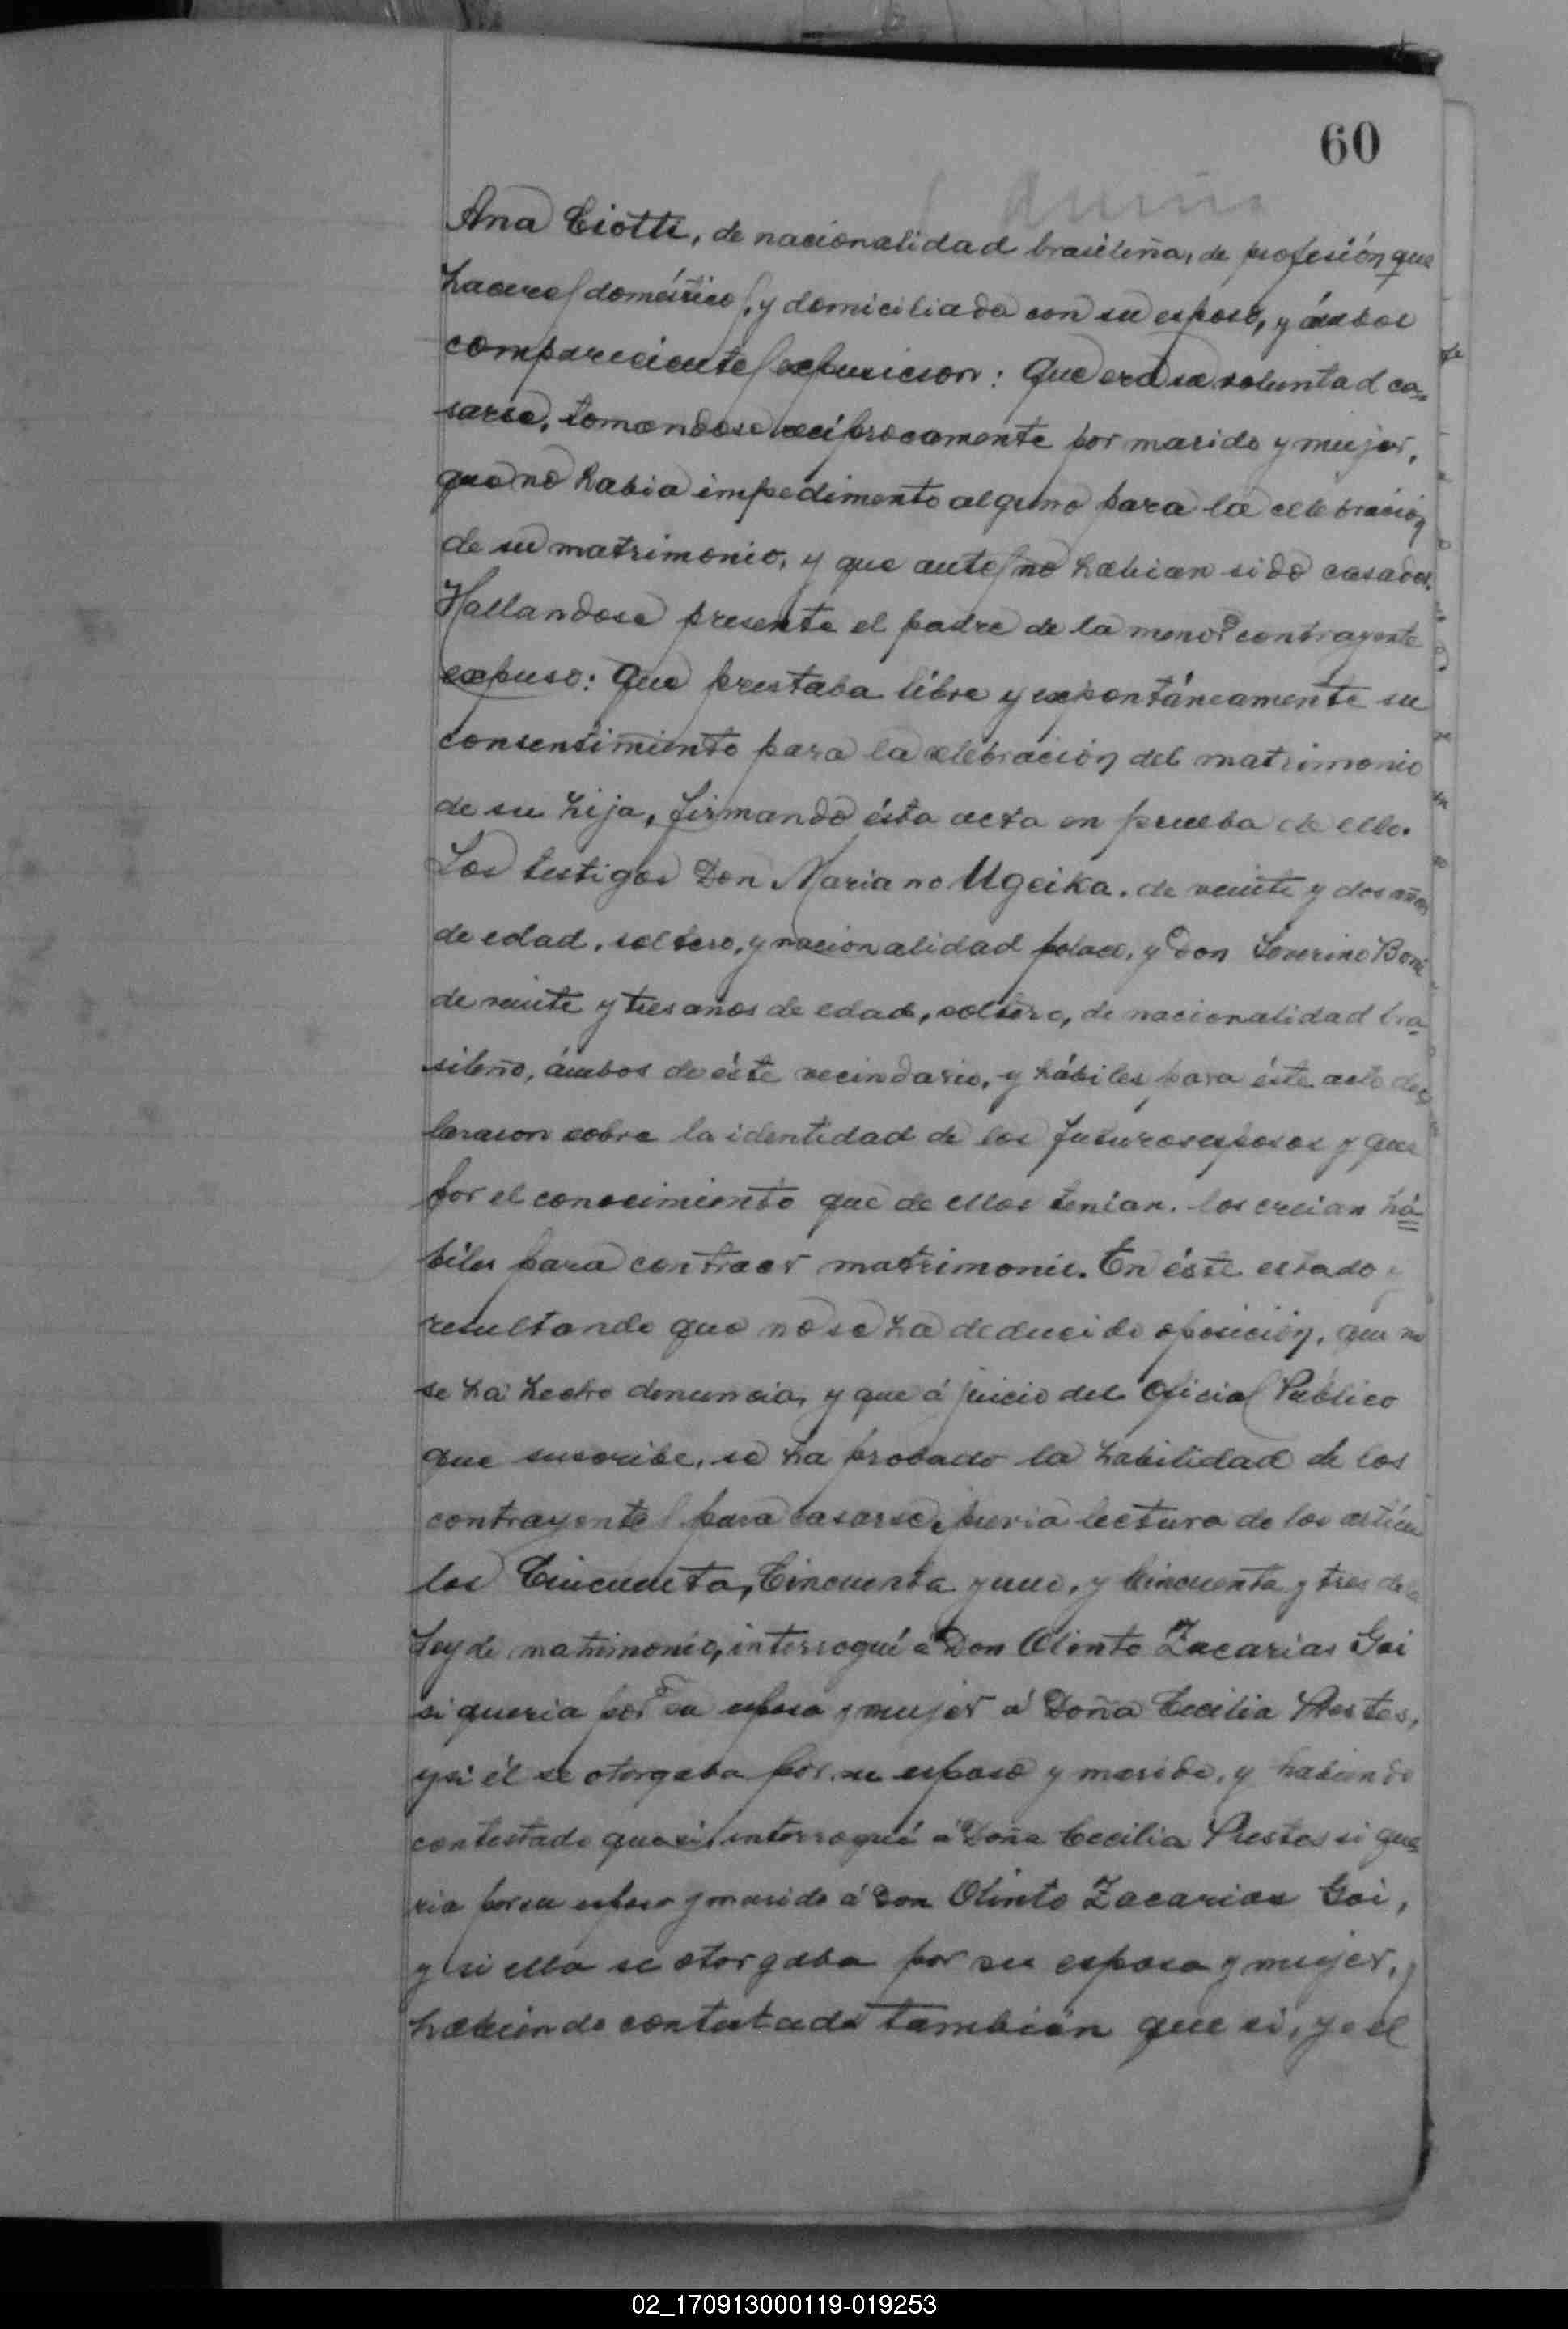 60
Ana Ciotti, de nacionalidad brasileña, de profesión que
haceres domésticos, y domiciliada con su esposo, y ámbos
comparecientes expusieron: Que era su voluntad ca-
sarse, tomandose recíprocamente por marido y mujer,
que no habia impedimento alguno para la celebración
de su matrimonio, y que antes no habian sido casados.
Hallandose presente el padre de la menor contrayente
expuso: Que prestaba libre y expontáneamente su
consentimiento para la celebración del matrimonio
de su hija, firmando ésta acta en prueba de ello.
Los testigos Don Mariano Ugeika, de veinte y dos años
de edad, soltero, y nacionalidad polaco, y Don Severino Boni
de veinte y tres años de edad, soltero, de nacionalidad bra
sileño, ámbos de éste vecindario, y hábiles para éste acto dec
lararon sobre la identidad de los futuros esposos y que
por el conocimiento que de ellos tenían, los creian há
biles para contraer matrimonio. En éste estado y
resultando que no se ha deducido oposición, que no
se ha hecho denuncia, y que á juicio del Oficial Público
que suscribe, se ha probado la habilidad de los
contrayentes para casarse, previa lectura de los artícu
los Cincuenta, Cincuenta y uno, y Cincuenta y tres de la
Ley de matrimonio, interrogué á Don Olinto Zacarias Goi
si queria por su esposa y mujer á Doña Cecilia Prestes,
y si él se otorgaba por su esposo y marido, y habiendo
contestado que si, interrogué á Doña Cecilia Prestes si que
ria por su esposo y marido á Don Olinto Zacarias Goi,
y si ella se otorgaba por su esposa y mujer, y
habiendo contestado también que si, yo el
02_170913000119-019253